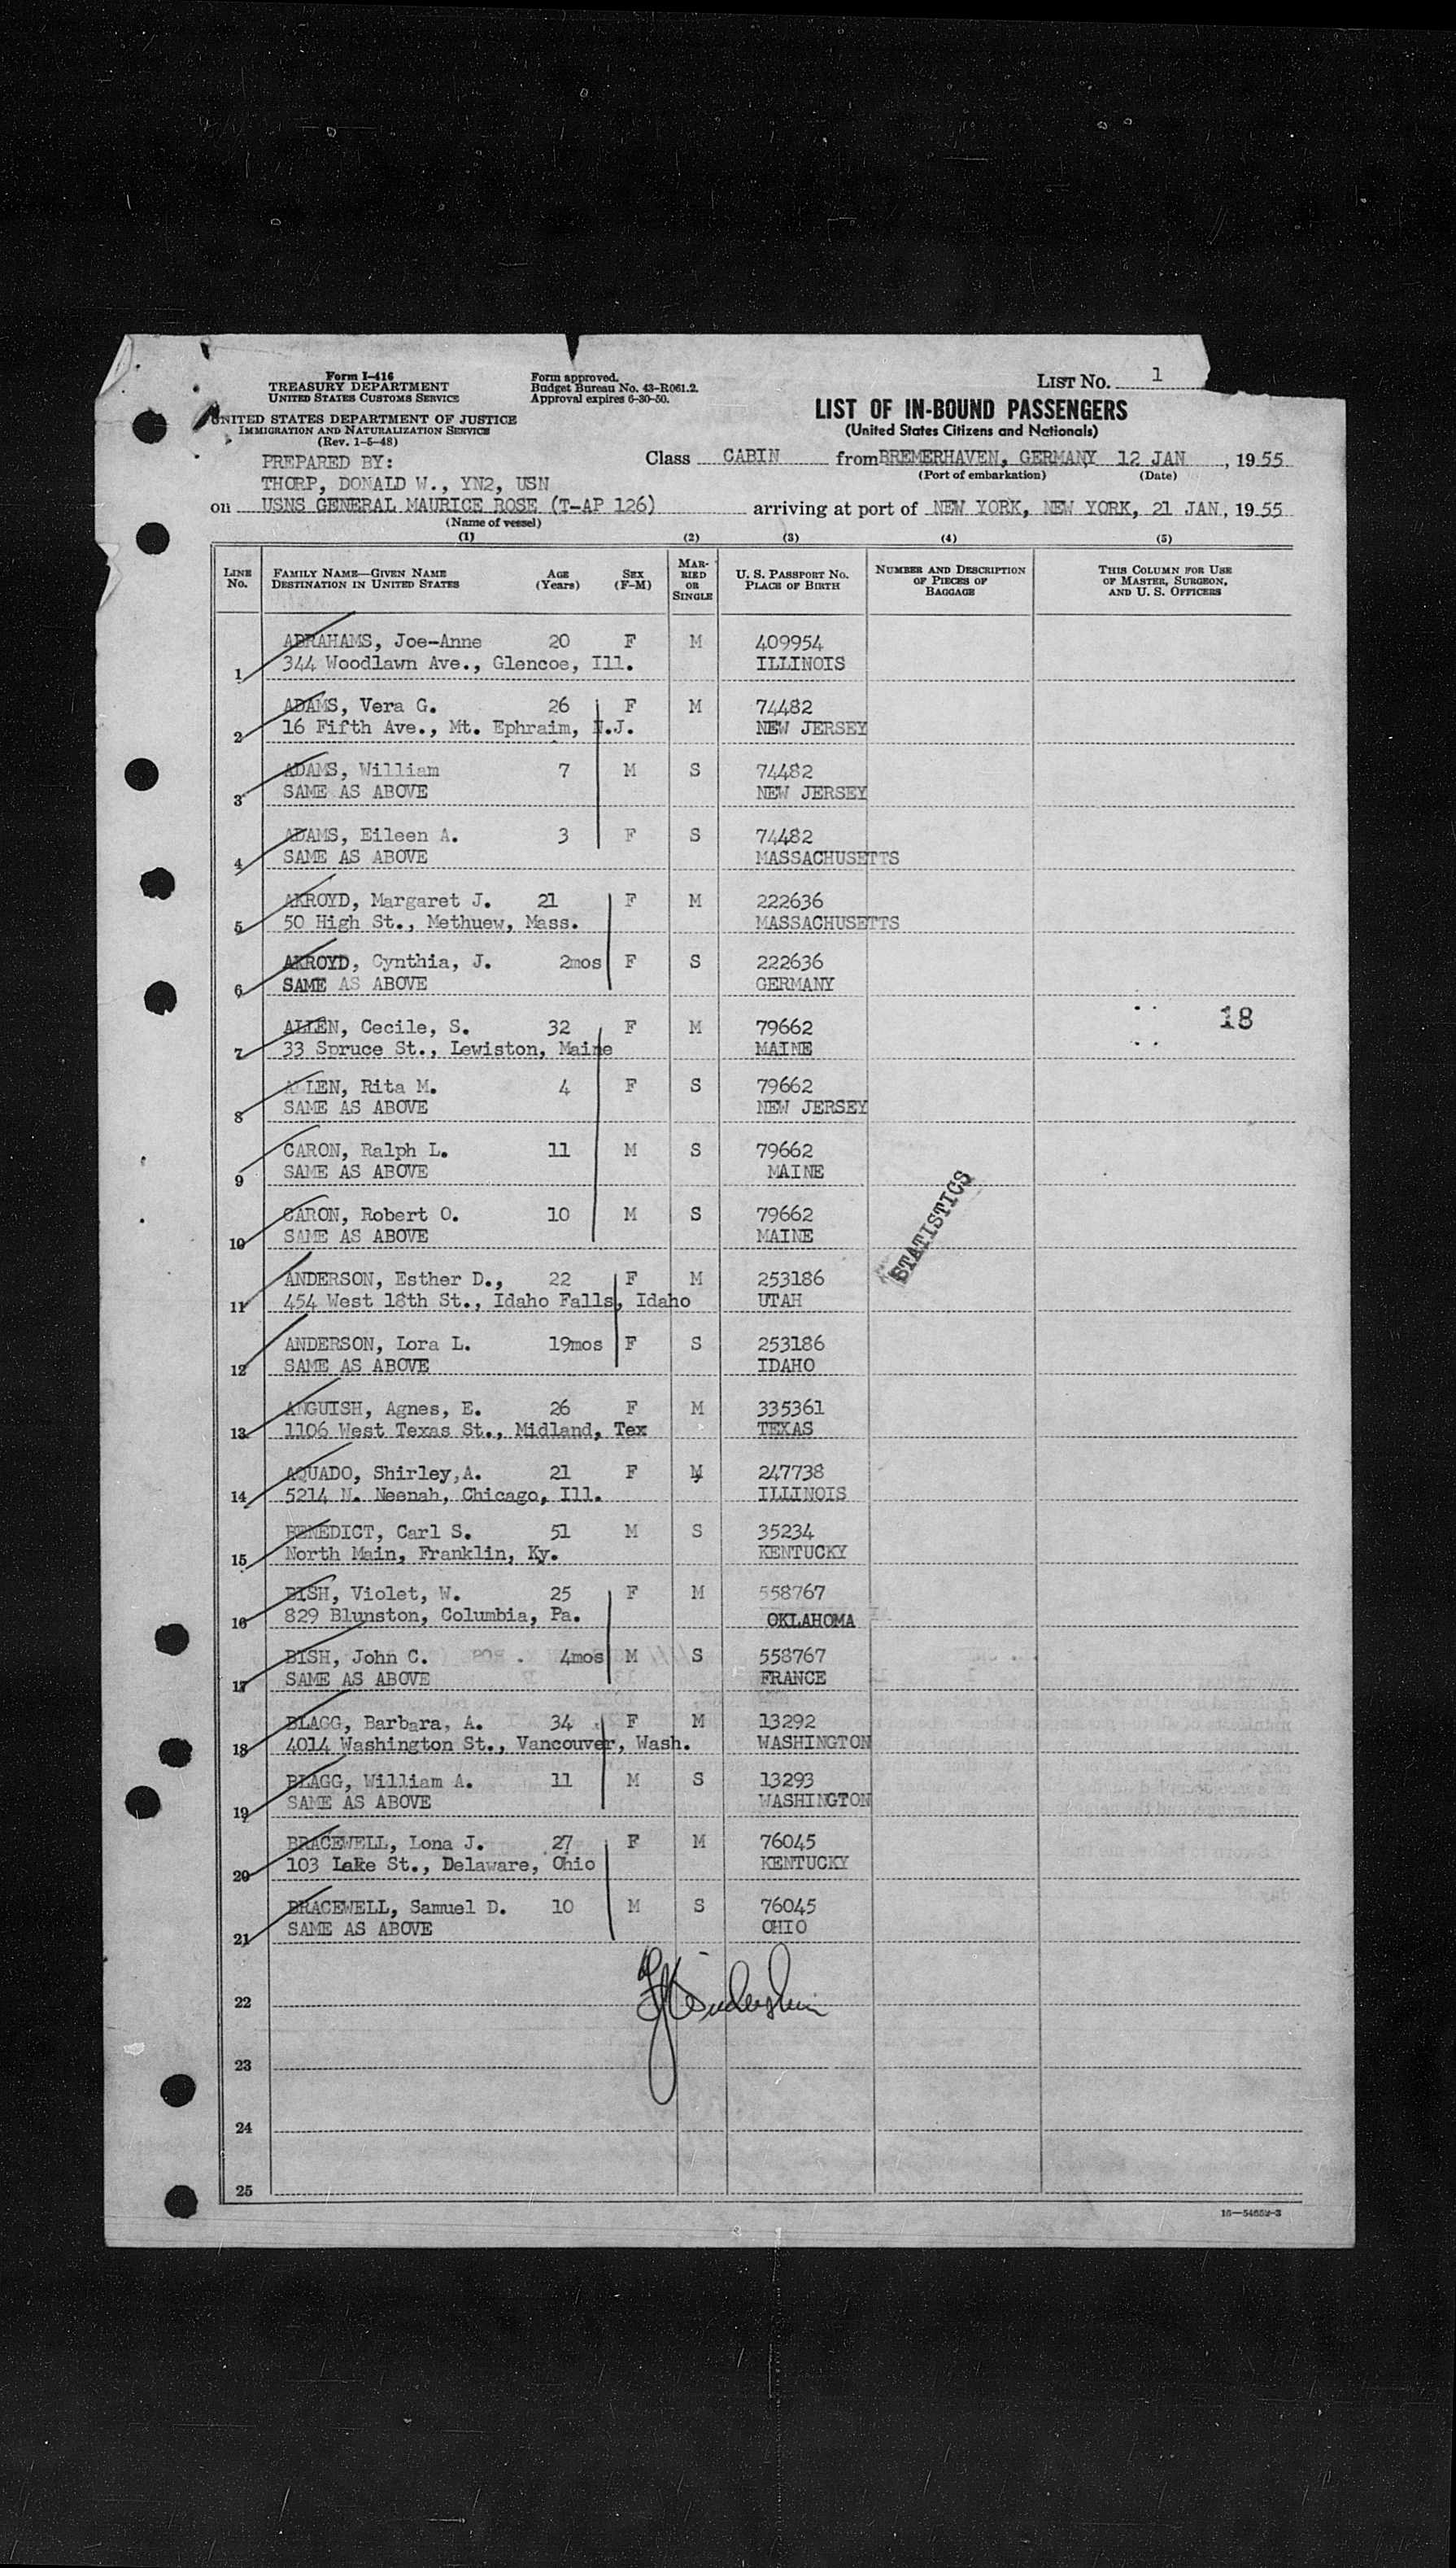 Form I-416
TREASURY DEPARTMENT
UNITED STATES CUSTOMS SERVICE
UNITED STATES DEPARTMENT OF JUSTICE
IMMIGRATION AND NATURALIZATION SERVICE
(Rev. 1-5-48)
Form approved.
Budget Bureau No. 43-R061.2.
Approval expires 6-30-50.
LIST NO. 1
LIST OF IN-BOUND PASSENGERS
(United States Citizens and Nationals)
PREPARED BY:
THORP, DONALD W., YN2, USN
Class CABIN from BREMERHAVEN, GERMANY 12 JAN, 1955
(Port of embarkation) (Date)
on USNS GENERAL MAURICE ROSE (T-AP 126) arriving at port of NEW YORK, NEW YORK, 21 JAN, 1955
(Name of vessel)
(1) (2) (3) (4) (5)
LINE NO. FAMILY NAME—GIVEN NAME DESTINATION IN UNITED STATES AGE (Years) SEX (F-M) MARRIED OR SINGLE U. S. PASSPORT NO. PLACE OF BIRTH NUMBER AND DESCRIPTION OF PIECES OF BAGGAGE THIS COLUMN FOR USE OF MASTER, SURGEON, AND U. S. OFFICERS
ABRAHAMS, Joe-Anne 20 F M 409954
1 344 Woodlawn Ave., Glencoe, Ill. ILLINOIS
ADAMS, Vera G. 26 F M 74482
2 16 Fifth Ave., Mt. Ephraim, N.J. NEW JERSEY
ADAMS, William 7 M S 74482
3 SAME AS ABOVE NEW JERSEY
ADAMS, Eileen A. 3 F S 74482
4 SAME AS ABOVE MASSACHUSETTS
AKROYD, Margaret J. 21 F M 222636
5 50 High St., Methuew, Mass. MASSACHUSETTS
AKROYD, Cynthia, J. 2mos F S 222636
6 SAME AS ABOVE GERMANY
ALLEN, Cecile, S. 32 F M 79662 18
7 33 Spruce St., Lewiston, Maine MAINE
ALLEN, Rita M. 4 F S 79662
8 SAME AS ABOVE NEW JERSEY
CARON, Ralph L. 11 M S 79662
9 SAME AS ABOVE MAINE
CARON, Robert O. 10 M S 79662
10 SAME AS ABOVE MAINE
STATISTICS
ANDERSON, Esther D., 22 F M 253186
11 454 West 18th St., Idaho Falls, Idaho UTAH
ANDERSON, Lora L. 19mos F S 253186
12 SAME AS ABOVE IDAHO
ANGUISH, Agnes, E. 26 F M 335361
13 1106 West Texas St., Midland, Tex TEXAS
AQUADO, Shirley,A. 21 F M 247738
14 5214 N. Neenah, Chicago, Ill. ILLINOIS
BENEDICT, Carl S. 51 M S 35234
15 North Main, Franklin, Ky. KENTUCKY
BISH, Violet, W. 25 F M 558767
16 829 Blunston, Columbia, Pa. OKLAHOMA
BISH, John C. 4mos M S 558767
17 SAME AS ABOVE FRANCE
BLAGG, Barbara, A. 34 F M 13292
18 4014 Washington St., Vancouver, Wash. WASHINGTON
BLAGG, William A. 11 M S 13293
19 SAME AS ABOVE WASHINGTON
BRACEWELL, Lona J. 27 F M 76045
20 103 Lake St., Delaware, Ohio KENTUCKY
BRACEWELL, Samuel D. 10 M S 76045
21 SAME AS ABOVE OHIO
22
23
24
25
16—54652-3